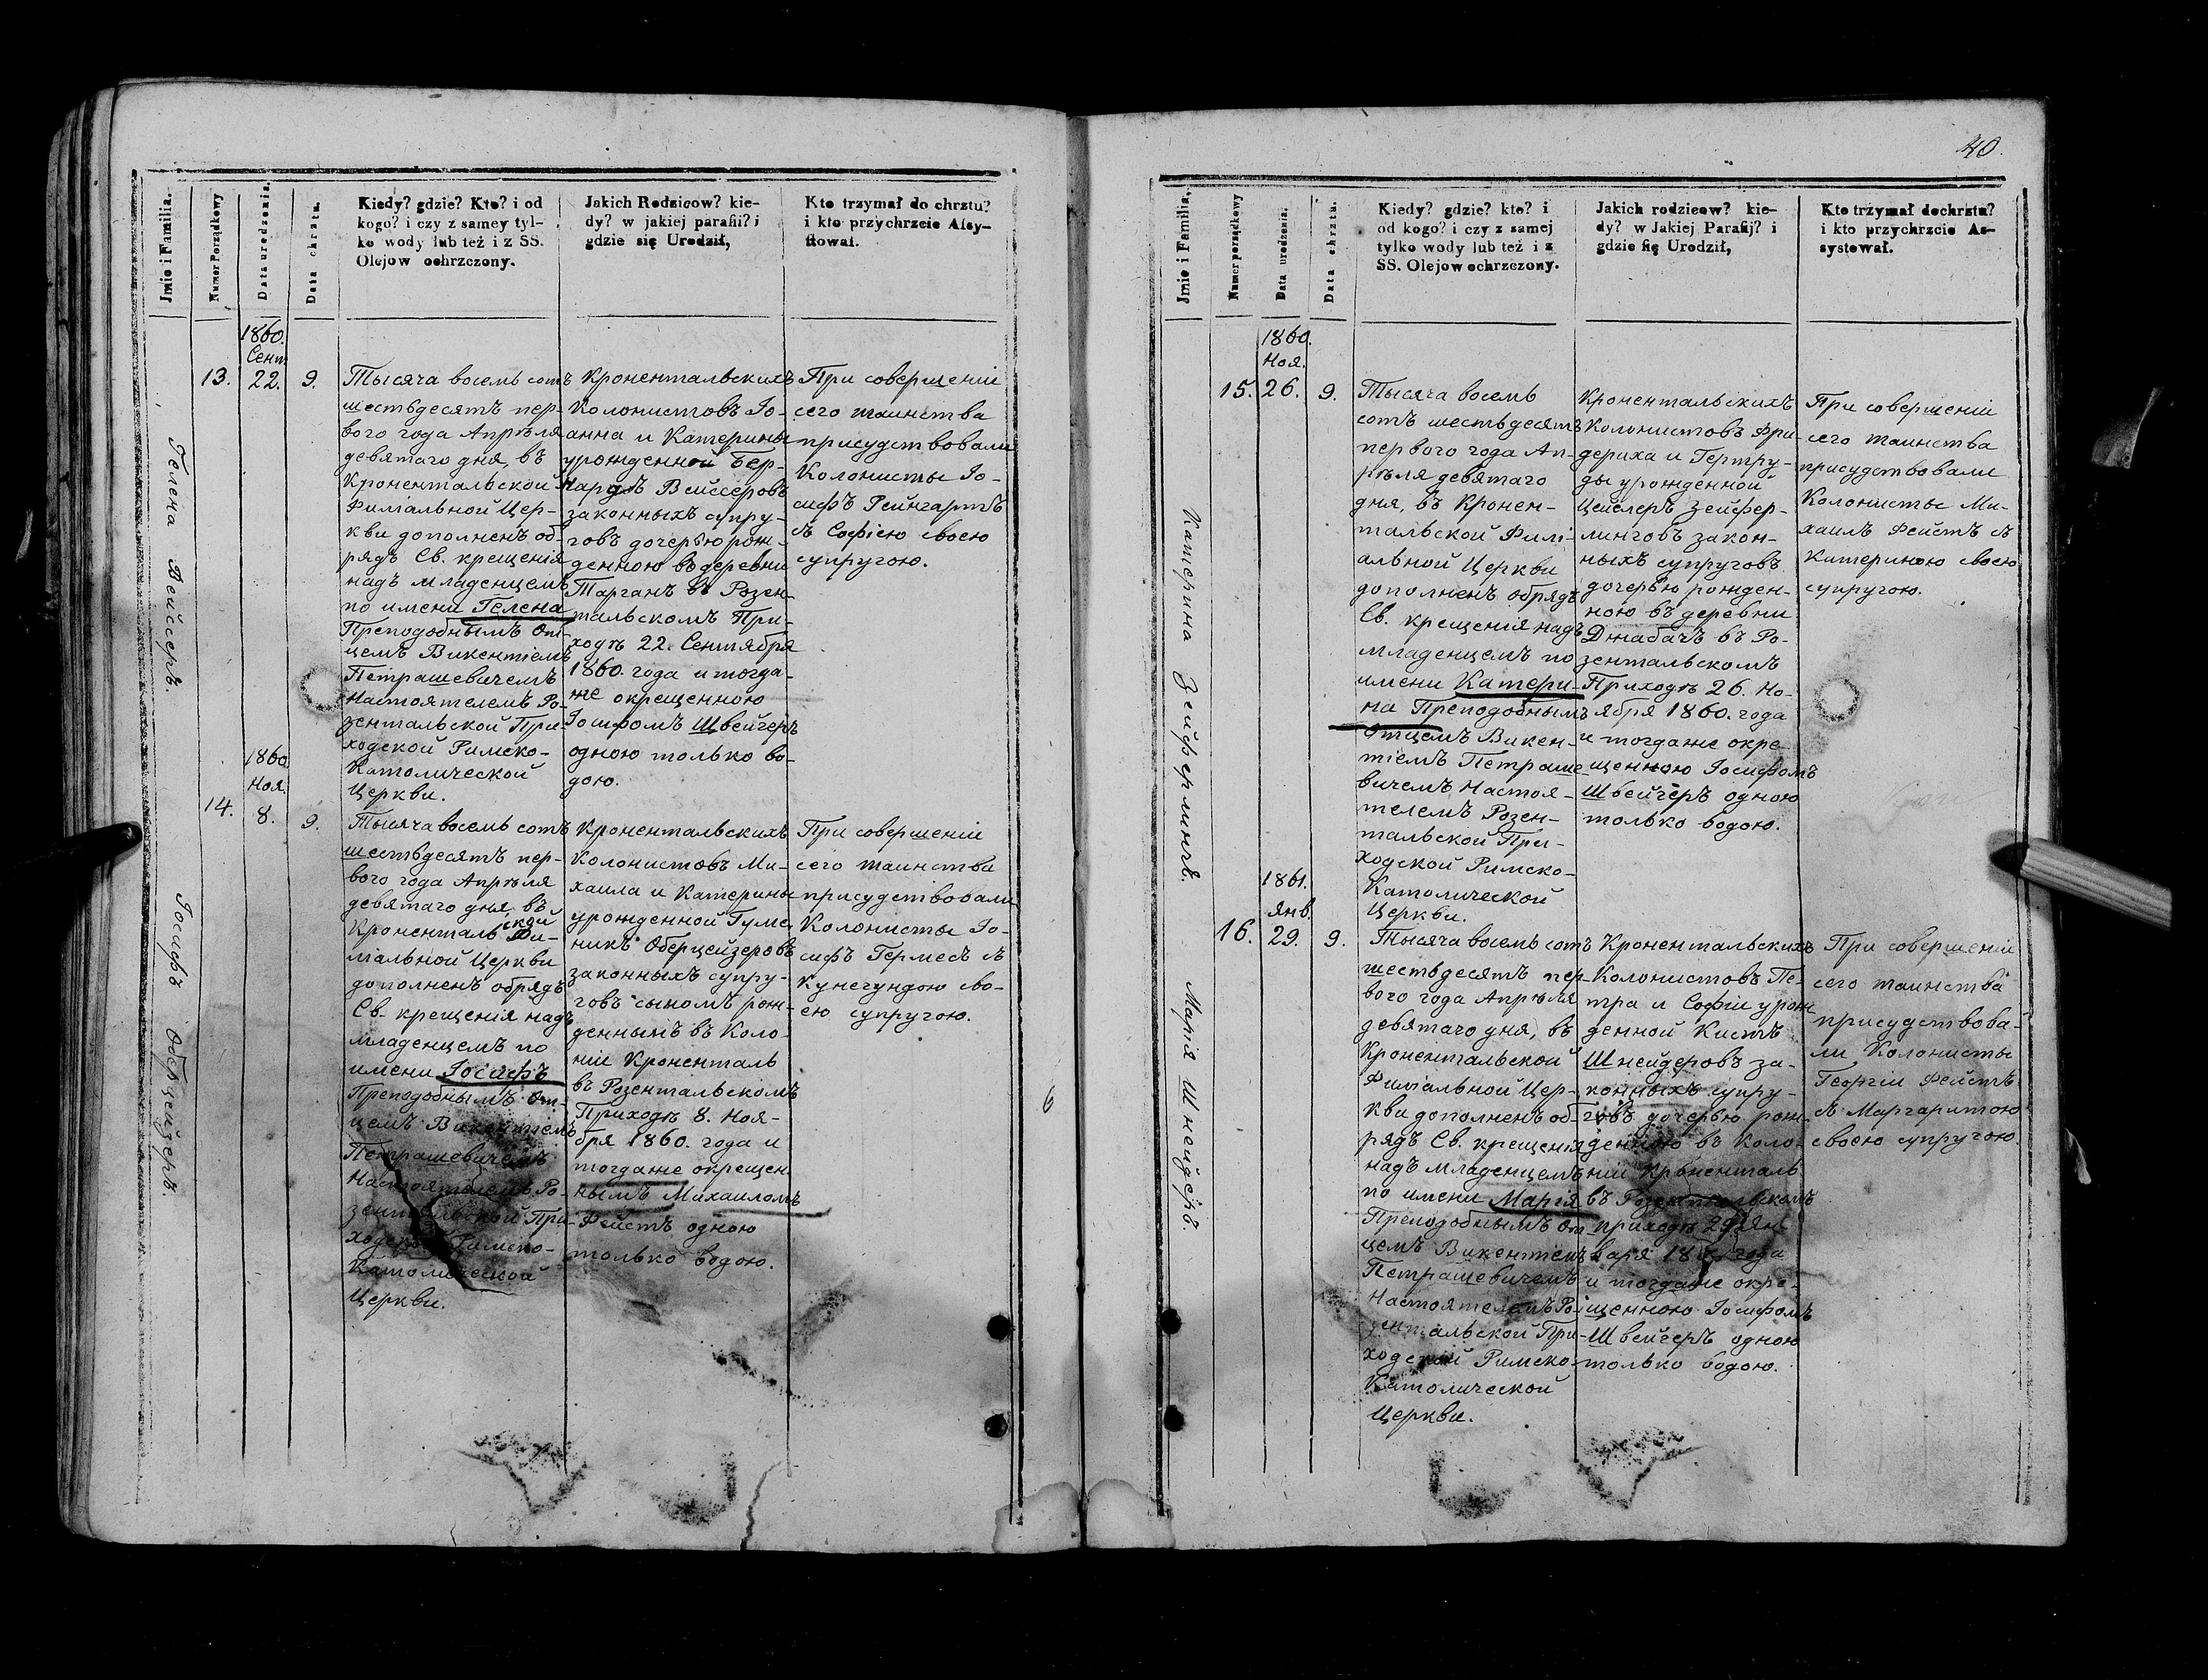 40.
Jmie i Familia.
Numer Porządkowy
Data urodzenia.
Data chrztu.
Kiedy? gdzie? Kto? i od
kogo? i czy z samey tyl-
ko wody lub też i z SS.
Olejow ochrzczony.
Jakich Rodzicow? kie-
dy? w jakiej parafii? i
gdzie się Urodził,
Kto trzymał do chrztu?
i kto przychrzcie Assy-
stował.
Гелена Вейссеръ.
13.
1860.
Сент
22.
9.
Тысяча восемь сотъ
шестьдесятъ пер-
вого года Апрѣля
девятаго дня, въ
Кронентальской
Филіальной Цер-
кви дополненъ об-
рядъ Св. крещенія
надъ младенцемъ
по имени Гелена
Преподобнымъ От-
цемъ Викентіемъ
Петрашевичемъ
Настоятелемъ Ро-
зентальской При-
ходской Римско-
Католической
Церкви.
Кронентальскихъ
Колонистовъ Іо-
анна и Катерины
урожденной Бер-
нардъ Вейссеровъ
законныхъ супру-
говъ дочерью рож-
денною въ деревни
Тарганъ въ Розен-
тальскомъ При-
ходѣ 22. Сентября
1860. года и тогда-
же окрещенною
Іосифомъ Швейгеръ
одною только во-
дою.
При совершеніи
сего таинства
присудствовали
Колонисты Іо-
сифъ Рейнгартъ
съ Софіею своею
супругою.
Іосифъ Оберцейзеръ.
14.
1860
Ноя.
8.
9.
Тысяча восемь сотъ
шестьдесятъ пер-
вого года Апрѣля
девятаго дня, въ
Кронентальской Фи-
ліальной Церкви
дополненъ обрядъ
Св. крещенія надъ
младенцемъ по
имени Іосифъ
Преподобнымъ От-
цемъ Викентіемъ
Петрашевичемъ
Настоятелемъ Ро-
зентальской При-
ходской Римско-
Католической
Церкви.
Кронентальскихъ
Колонистовъ Ми-
хаила и Катерины
урожденной Гуме-
никъ Оберцейзеровъ
законныхъ супру-
говъ сыномъ рож-
деннымъ въ Коло-
ніи Кроненталь
въ Розентальскомъ
Приходѣ 8. Ноя-
бря 1860. года и
тогдаже окрещен-
нымъ Михаиломъ
Фейстъ одною
только водою.
При совершеніи
сего таинства
присудствовали
Колонисты Іо-
сифъ Гермесъ съ
Кунегундою сво-
ею супругою.
6
Jmie i Familia.
Numer porządkowy
Data urodzenia.
Data chrztu.
Kiedy? gdzie? kto? i
od kogo? i czy z samej
tylko wody lub też i z
SS. Olejow ochrzczony.
Jakich rodzicow? kie-
dy? w Jakiej Parafij? i
gdzie się Urodził,
Kto trzymał dochrztu?
i kto przychrzcie As-
systował.
Катерина Зейферлингъ.
15.
1860.
Ноя.
26.
9.
Тысяча восемь
сотъ шестьдесятъ
первого года Ап-
рѣля девятаго
дня, въ Кронен-
тальской Филі-
альной Церкви
дополненъ обрядъ
Св. крещенія надъ
младенцемъ по
имени Катери-
на Преподобнымъ
Отцемъ Викен-
тіемъ Петраше-
вичемъ Настоя-
телемъ Розен-
тальской При-
ходской Римско-
Католической
Церкви.
Кронентальскихъ
Колонистовъ Фри-
дериха и Гертру-
ды урожденной
Цейслеръ Зейфер-
линговъ закон-
ныхъ супруговъ
дочерью рожден-
ною въ деревни
Джабачъ въ Ро-
зентальскомъ
Приходѣ 26. Но-
ября 1860. года
и тогдаже окре-
щенною Іосифомъ
Швейгеръ одною
только водою.
При совершеніи
сего таинства
присудствовали
Колонисты Ми-
хаилъ Фейстъ съ
Катериною своею
супругою.
Марія Шнейдеръ.
16.
1861.
Янв.
29.
9.
Тысяча восемь сотъ
шестьдесятъ пер-
вого года Апрѣля
девятаго дня, въ
Кронентальской
Филіальной Цер-
кви дополненъ об-
рядъ Св. крещенія
надъ младенцемъ
по имени Марія
Преподобнымъ От-
цемъ Викентіемъ
Петрашевичемъ
Настоятелемъ Ро-
зентальской При-
ходской Римско-
Католической
Церкви.
Кронентальскихъ
Колонистовъ Пе-
тра и Софіи урож-
денной Кистъ
Шнейдеровъ за-
конныхъ супру-
говъ дочерью рож-
денною въ Коло-
ніи Кроненталь
въ Розентальскомъ
приходѣ 29. Ян-
варя года
и тогдаже окре-
щенною Іосифомъ
Швейгеръ одною
только водою.
При совершеніи
сего таинства
присудствова-
ли Колонисты
Георгіи Фейстъ
съ Маргаритою
своею супругою.